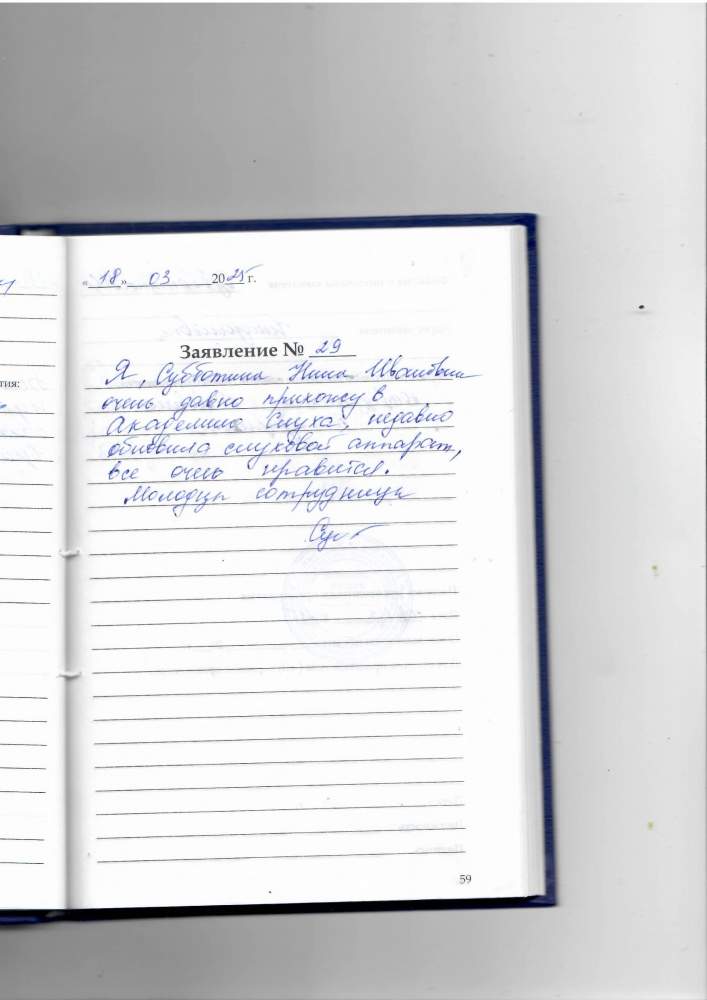 «18» 03 2025 г.
Заявление № 29
Я, Субботина Нина Ивановна
очень давно прихожу в
Академию Слуха, недавно
обновила слуховой аппарат,
все очень нравится.
Молодцы сотрудницы
тия:
59